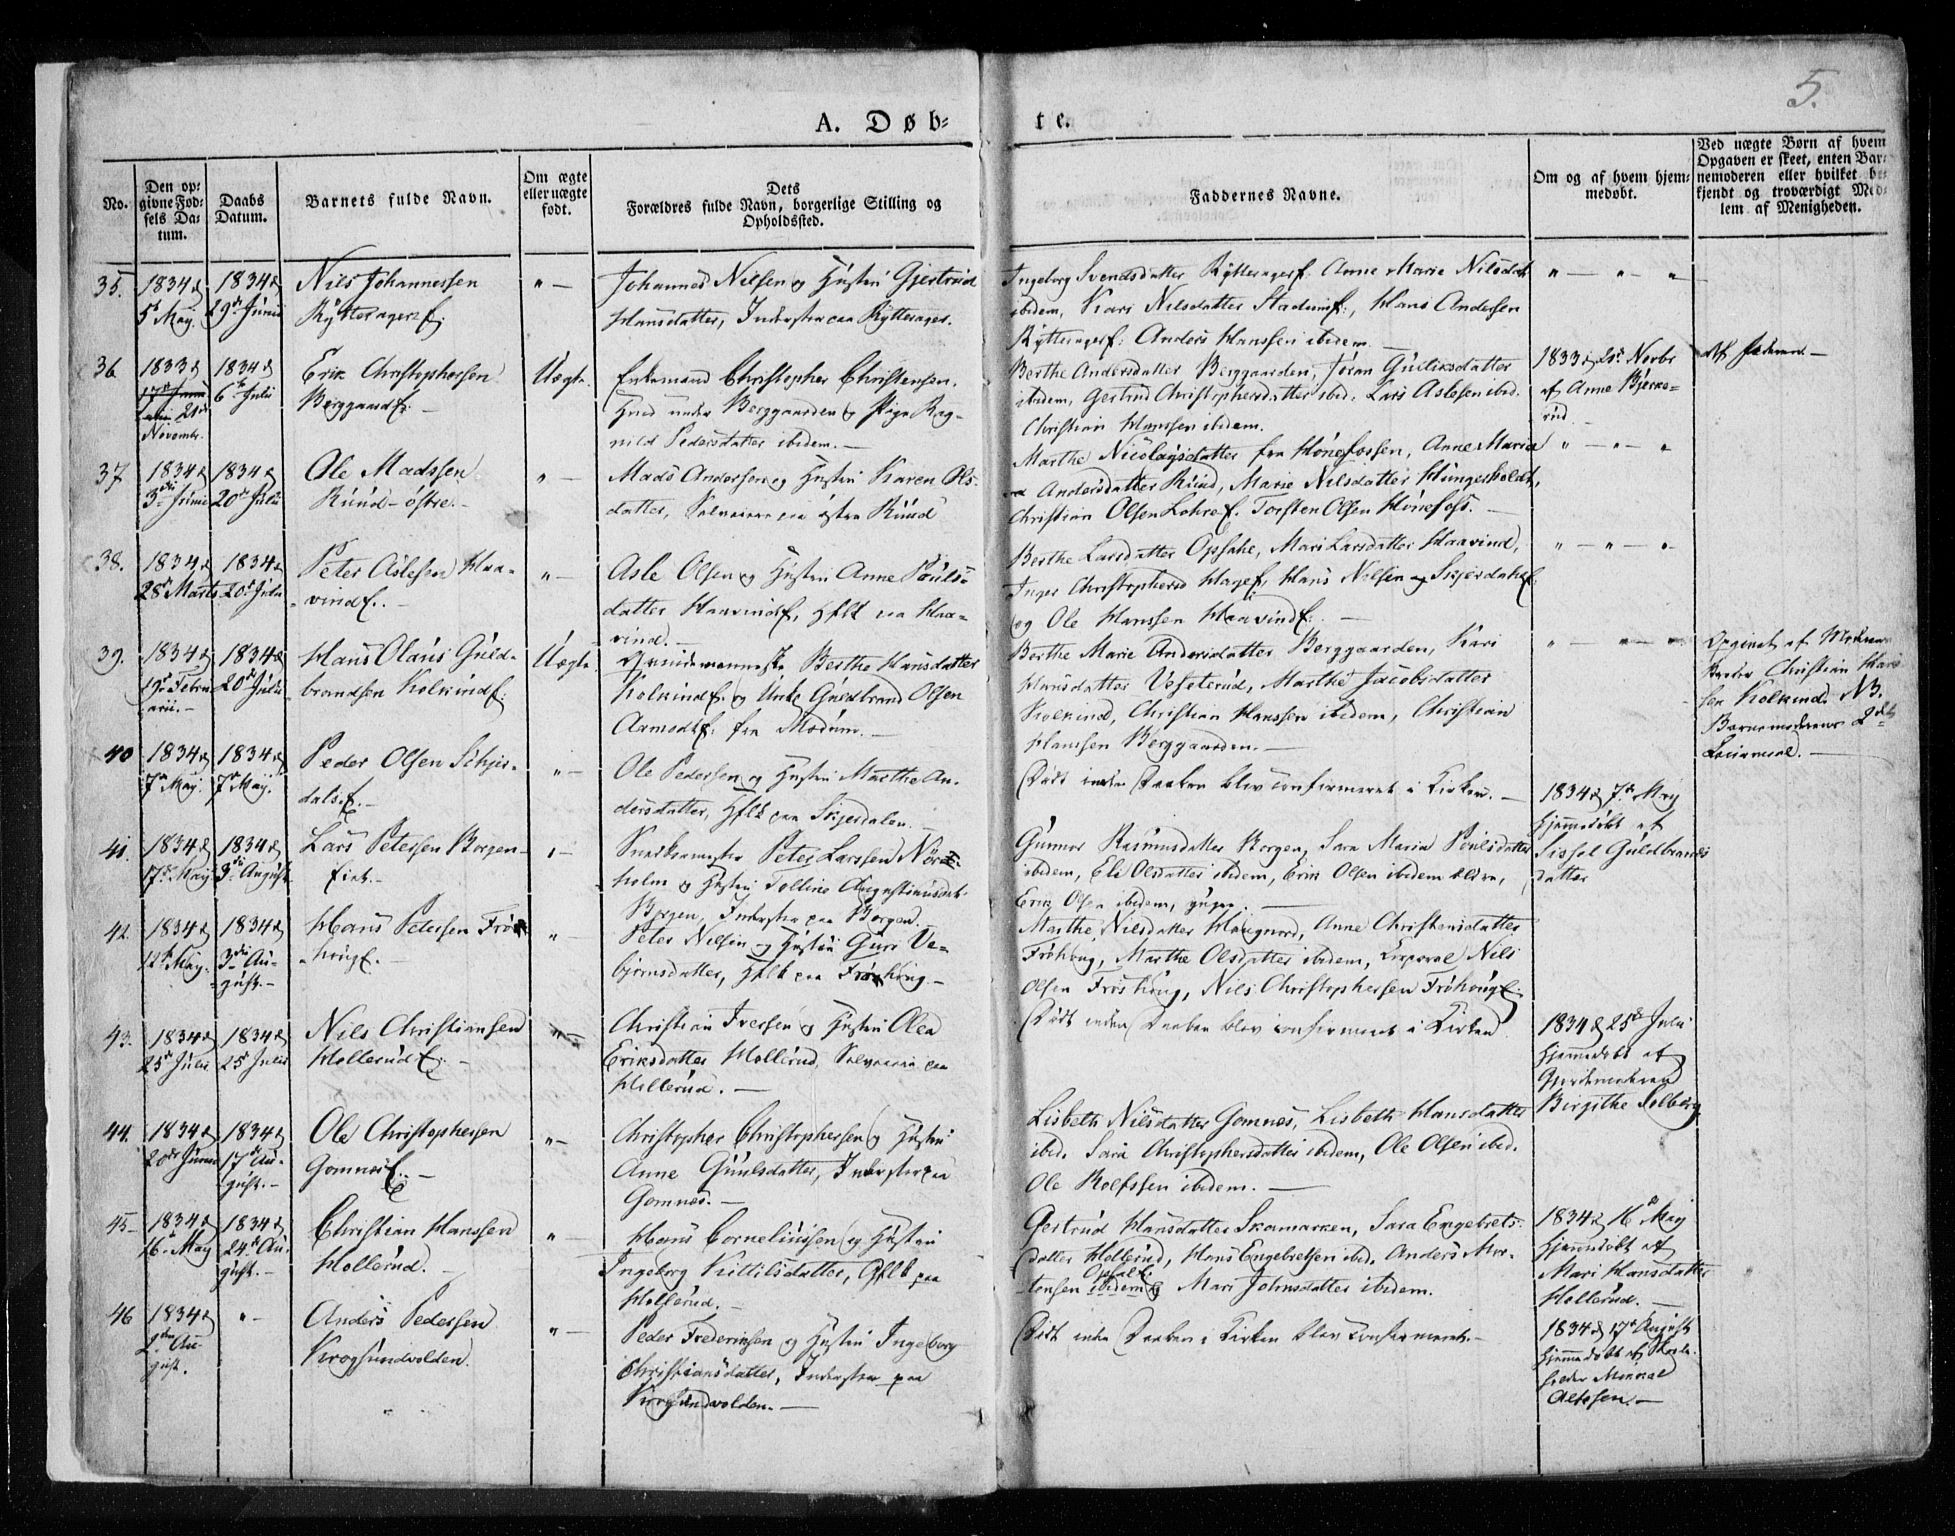 5.
A. Døb-
te.
No.
Den op-
givne Fød-
sels Da-
tum.
Daabs
Datum.
Barnets fulde Navn.
Om ægte
eller uægte
født.
Dets
Forældres fulde Navn, borgerlige Stilling og
Opholdssted.
Faddernes Navne.
Om og af hvem hjem-
medøbt.
Ved uægte Børn af hvem
Opgaven er skeet, enten Bar-
nemoderen eller hvilket be-
kjendt og troværdigt Med-
lem af Menigheden.
35.
1834
5 May.
1834
29 Junii
Nils Johannessen
Rytteragerf.
Johannes Nilsen og Hustru Gjertrud
Hansdatter, Inderster paa Rytterager.
Ingeborg Svendsdatter Rytteragerf. Anne Marie Nilsdat
ibidem, Kari Nilsdatter Stadumf., Hans Andersen
Rytteragerf: Anders Hanssen ibidem
36.
1833
21
Novembr.
1834
6 Julii
Erik Christophersen
Berggaardf.
Uægte
Enkemand Christopher Christensen
under Berggaarden og Pige Rag-
nild Pedersdatter ibidem.
Berthe Andersdatter Berggaarden, Jøran Guliksdatter
ibidem, Gertrud Christophersdatter ibid. Lars Aslesen ibid.
Christian Hanssen ibidem.
1833 21 Novbr
af Anne Bjerke-
rud
Af Faderen
37
1834
3 Junii
1834
20 Julii
Ole Madssen
Ruud-østre.
Mads Andersen og Hustru Karen Ols-
datter, Selveiere paa østre Ruud
Marthe Nicolaysdatter fra Hønefossen, Anne Maria
Andersdatter Ruud, Marie Nilsdatter Hungerholdt,
Christian Olsen Lohref. Torsten Olsen Hønefoss.
38.
1834
28 Marts
1834
20 Julii
Peter Aslesen Haa-
vindf.
Asle Olsen og Hustru Anne Pouls-
datter Haavindf, Hflk paa Haa-
vind.
Berthe Larsdatter Opsahe, Mari Larsdatter Haavind,
Inger Christophersd Hagef, Hans Nilsen Skjerdalef.
og Ole Hanssen Haavindf.
39.
1834
19 Febru
arii.
1834
20 Julii
Hans Olaus Guld-
brandsen Kolkindf.
Uægte
Berthe Hansdatter
Kolkindf. og Unkl Guldbrand Olsen
Aamodtf. fra Modum.
Berthe Marie Andersdatter Berggaarden, Kari
Hansdatter Veseterud, Marthe Jacobsdatter
Kolkind, Christian Hanssen ibidem, Christian
Hanssen Berggaarden.
Opgivet af Moderens
Broder Christian Hans
sen Kolkind. NB.
Barnemoderens 2det
Leiermaal.
40
1834
7 May.
1834
7 May.
Peder Olsen Schjer-
dalsf.
Ole Pedersen og Hustru Marthe An-
dersdatter, Hflk paa Skjerdalen.
Død inden Daaben blev confirmeret i Kirken.
1834 7 May
hjemmedøbt af
Sissel Guldbrands
datter
41.
1834
17 May
1834
3 August
Lars Petersen Borgen-
fink.
Peter Larssen Nord-
holm og Hustru Augustinusdat.
Borgen, Inderster paa Borgen.
Gunnor Rasmusdatter Borgen, Sara Maria Poulsdatter
ibidem, Eli Olsdatter ibidem, Erik Olsen ibidem ældre,
Erik Olsen ibidem, yngre.
42.
1834
12 May.
1834
3 Au-
gust.
Hans Petersen Frøs
hougf.
Peter Nilsen og Hustru Guri Ve-
bjørnsdatter, Hflk paa Frøshoug
Marthe Nilsdatter Haugnord, Anne Christensdatter
Frøhoug, Marthe Olsdatter ibidem, Corporal Nils
Olsen Frøshoug, Nils Christophersen Frøhougf.
43.
1834
25 Julii
1834
25 Julii
Nils Christiansen
Hollerudf.
Christian Iversen og Hustru Olea
Eriksdatter Hollerud, Selveiere paa
Hollerud.
Død inden Daaben blev confirmeret i Kirken
1834 25 Julii
hjemmedøbt af
Gjordemoderen
Birgithe Solberg
44.
1834
20 Junii
1834
17 Au-
gust.
Ole Christophersen
Gomnesf.
Christopher Christophersen og Hustru
Anne Guulsdatter, Inderster paa
Gomnes.
Lisbeth Nilsdatter Gomnes, Lisbeth Hansdatter
ibid. Sara Christophersdatter ibidem, Ole Olsen ibid.
Ole Rolfssen ibidem.
45
1834
16 May
1834
24 Au-
gust.
Christian Hanssen
Hollerud.
Hans Corneliussen og Hustru
Ingeborg Kittilsdatter, Hflk paa
Hollerud.
Gertrud Hansdatter Skamarken, Sara Engebrets-
datter Hollerud, Hans Engebretsen ibid. Anders Mor-
tensen ibidem og Mari Johnsdatter ibidem.
1834 16 May
hjemmedøbt af
Mari Hansdatter
Hollerud.
46
1834
2 Au-
gust.
Anders Pedersen
Krogsundvolden.
Peder Frederiksen og Hustru Ingeborg
Christiansdatter, Inderster paa
Krogsundvolden.
Død inden Daaben i Kirken blev confirmeret.
1834 17 August
hjemmedøbt af Skole-
holder